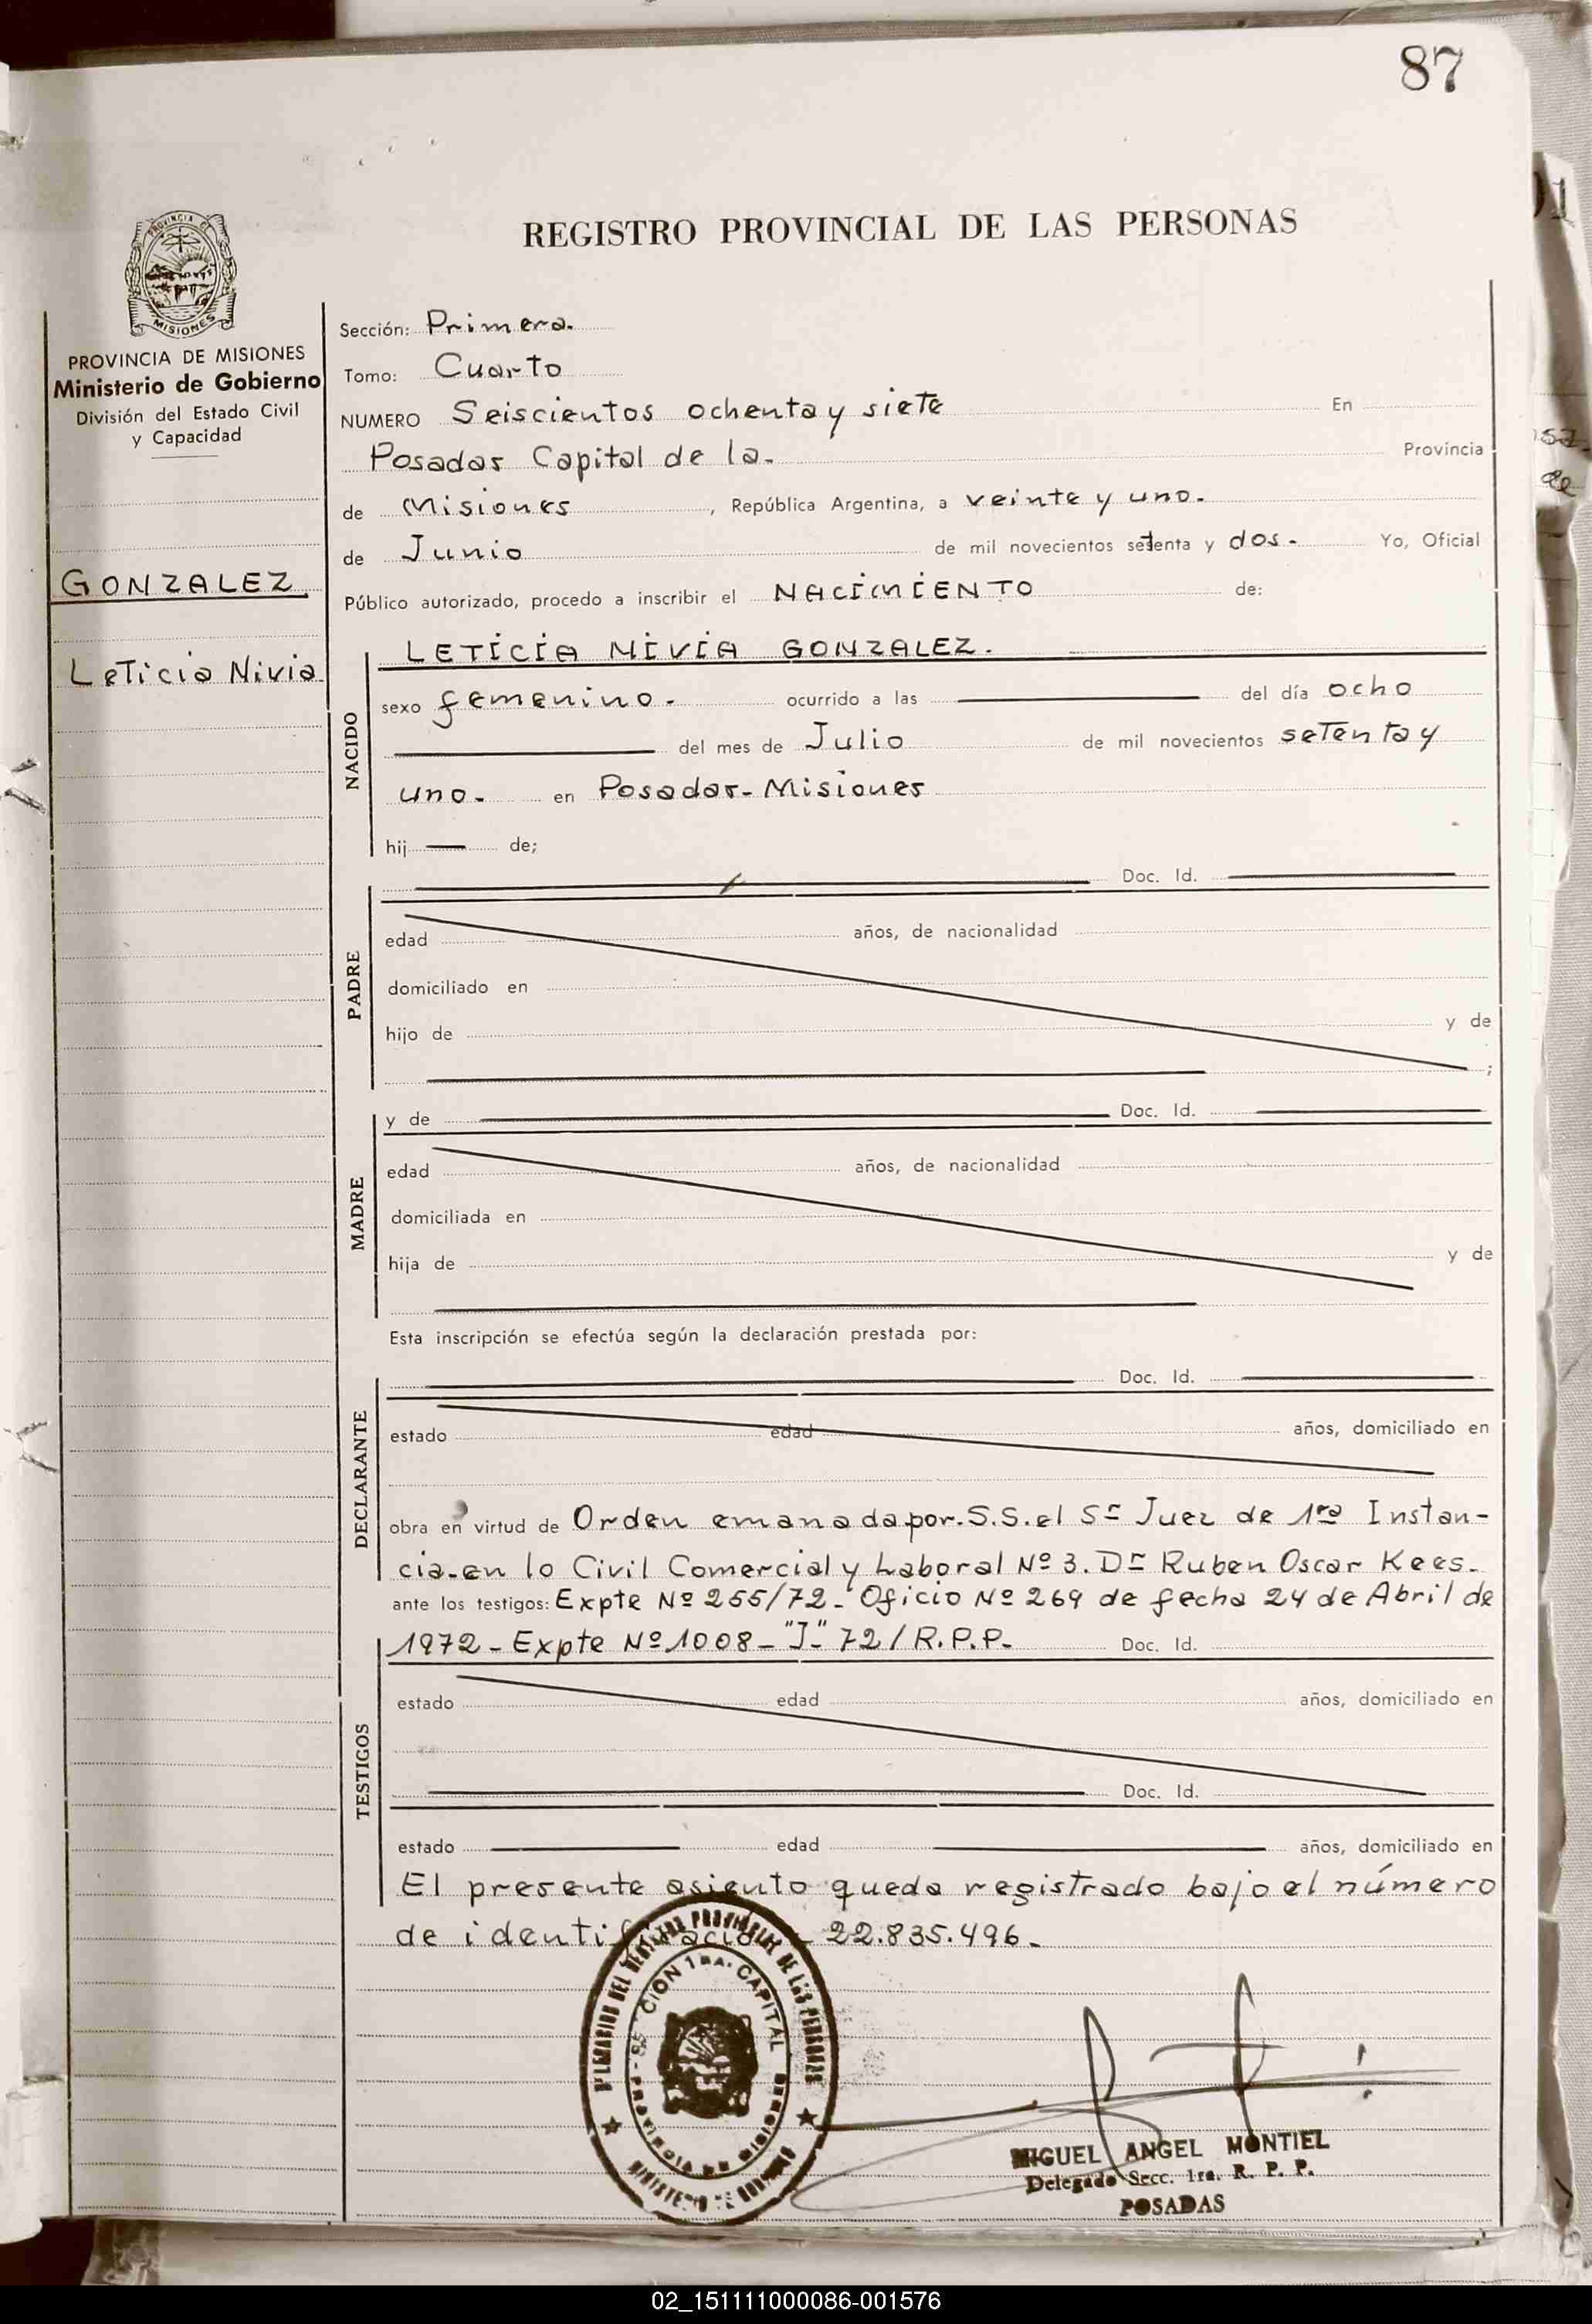 87
REGISTRO PROVINCIAL DE LAS PERSONAS
PROVINCIA DE
MISIONES
PROVINCIA DE MISIONES
Ministerio de Gobierno
División del Estado Civil
y Capacidad
GONZALEZ
Leticia Nivia
Sección: Primera.
Tomo: Cuarto
NUMERO Seiscientos ochenta y siete En
Posadas Capital de la. Provincia
de Misiones, República Argentina, a veinte y uno.
de Junio de mil novecientos setenta y dos. Yo, Oficial
Público autorizado, procedo a inscribir el NACIMIENTO de:
NACIDO
LETICIA NIVIA GONZALEZ.
sexo femenino. ocurrido a las del día ocho
del mes de Julio de mil novecientos setenta y
uno. en Posadas-Misiones
hij de;
PADRE
Doc. Id.
edad años, de nacionalidad
domiciliado en
hijo de y de
;
MADRE
y de Doc. Id.
edad años, de nacionalidad
domiciliada en
hija de y de
Esta inscripción se efectúa según la declaración prestada por:
DECLARANTE
Doc. Id.
estado edad años, domiciliado en
obra en virtud de Orden emanada por. S.S. el Sr Juez de 1ra Instan-
cia en lo Civil Comercial y Laboral Nº 3. Dr Ruben Oscar Kees.
ante los testigos: Expte Nº 255/72- Oficio Nº 269 de fecha 24 de Abril de
1972 - Expte Nº 1008-"J-" 72/R.P.P. Doc. Id.
TESTIGOS
estado edad años, domiciliado en
Doc. Id.
estado edad años, domiciliado en
El presente asiento queda registrado bajo el número
de identificación 22.835.496.
DEL REGISTRO PROVINCIAL DE LAS PERSONAS
CION 1RA. CAPITAL
PROVINCIA DE MISIONES
MINISTERIO DE GOBIERNO
MIGUEL ANGEL MONTIEL
Delegado Secc. 1ra. R. P. P.
POSADAS
de
02_151111000086-001576